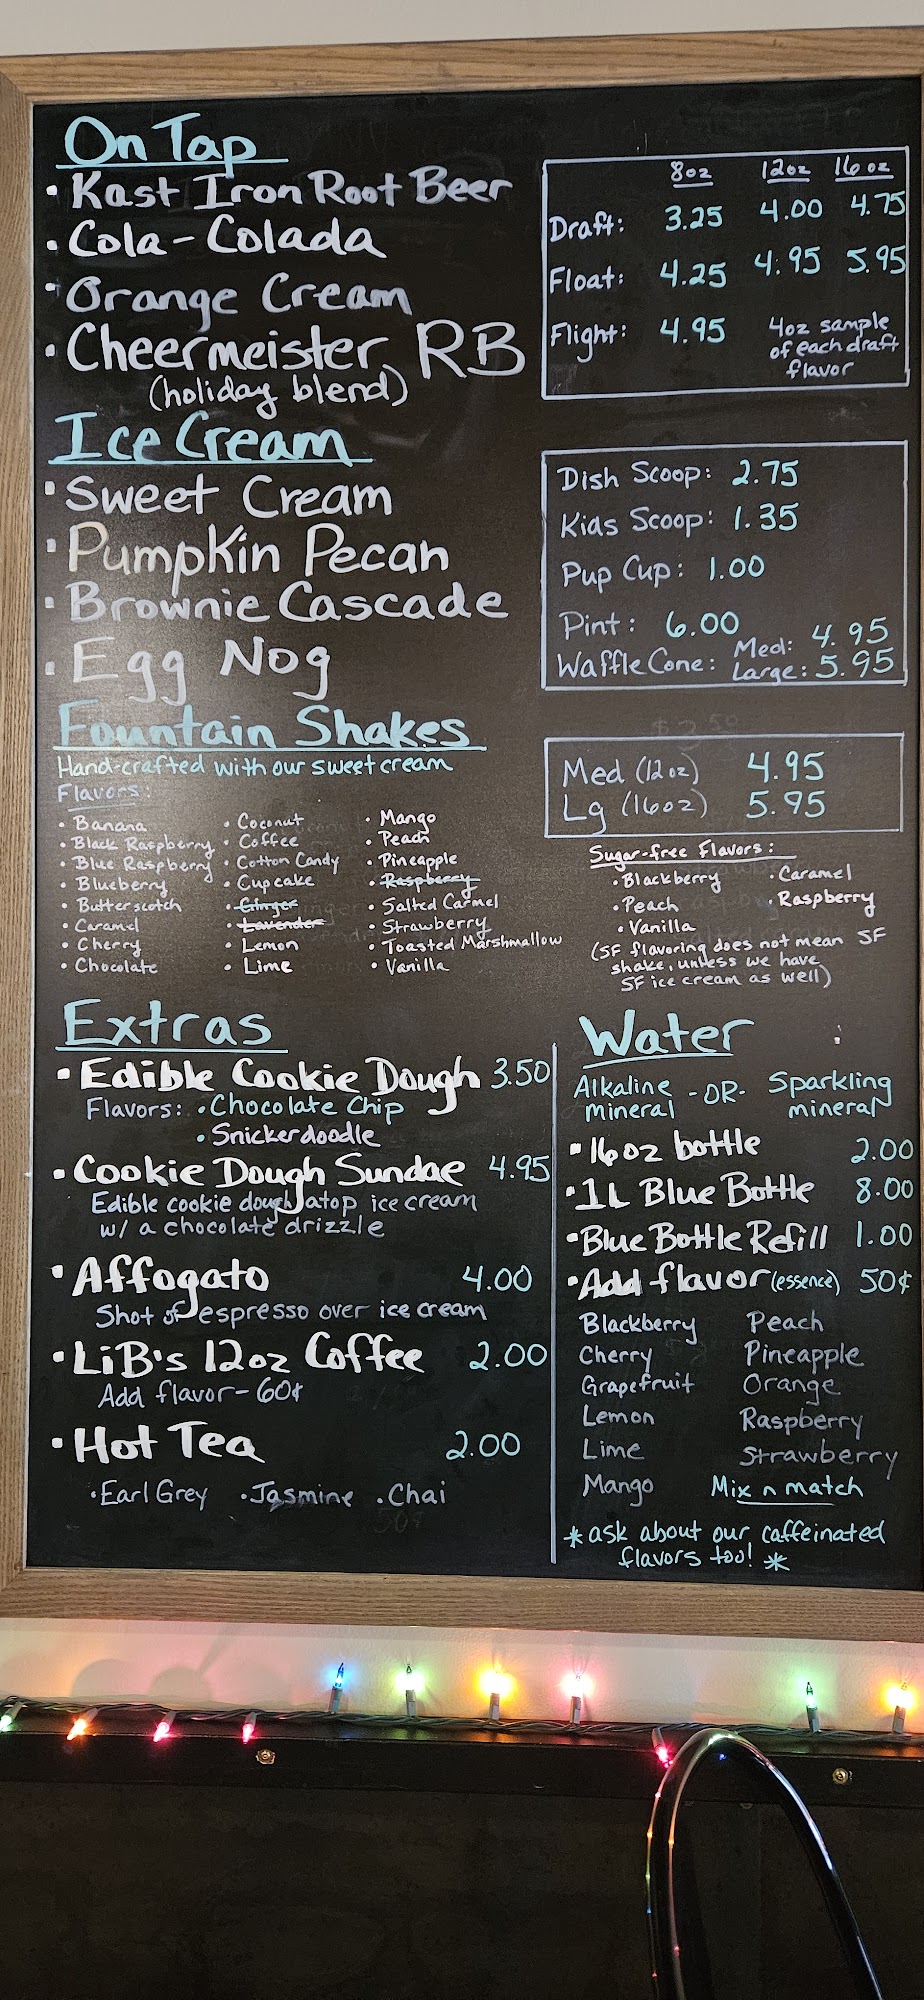 On Tap
• Kast Iron Root Beer
• Cola-Colada
• Orange Cream
• Cheermeister RB
(holiday blend)
8oz 12oz 16oz
Draft: 3.25 4.00 4.75
Float: 4.25 4.95 5.95
Flight: 4.95 4oz sample
of each draft
flavor
Ice Cream
• Sweet Cream
• Pumpkin Pecan
• Brownie Cascade
• Egg Nog
Dish Scoop: 2.75
Kids Scoop: 1.35
Pup Cup: 1.00
Pint: 6.00
Waffle Cone: Med: 4.95
Large: 5.95
Fountain Shakes
Hand-crafted with our sweet cream
Flavors:
• Banana
• Black Raspberry
• Blue Raspberry
• Blueberry
• Butterscotch
• Caramel
• Cherry
• Chocolate
• Coconut
• Coffee
• Cotton Candy
• Cupcake
• Ginger
• Lavender
• Lemon
• Lime
• Mango
• Peach
• Pineapple
• Raspberry
• Salted Carmel
• Strawberry
• Toasted Marshmallow
• Vanilla
Med (12oz) 4.95
Lg (16oz) 5.95
Sugar-free Flavors:
• Blackberry • Caramel
• Peach • Raspberry
• Vanilla
(SF flavoring does not mean SF
shake, unless we have
SF ice cream as well)
Extras
• Edible Cookie Dough 3.50
Flavors: • Chocolate Chip
• Snickerdoodle
• Cookie Dough Sundae 4.95
Edible cookie dough atop ice cream
w/ a chocolate drizzle
• Affogato 4.00
Shot of espresso over ice cream
• LiB's 12oz Coffee 2.00
Add flavor - 60¢
• Hot Tea 2.00
• Earl Grey • Jasmine • Chai
Water
Alkaline mineral -OR- Sparkling mineral
• 16oz bottle 2.00
• 1L Blue Bottle 8.00
• Blue Bottle Refill 1.00
• Add flavor (essence) 50¢
Blackberry Peach
Cherry Pineapple
Grapefruit Orange
Lemon Raspberry
Lime Strawberry
Mango Mix n match
* ask about our caffeinated
flavors too! *